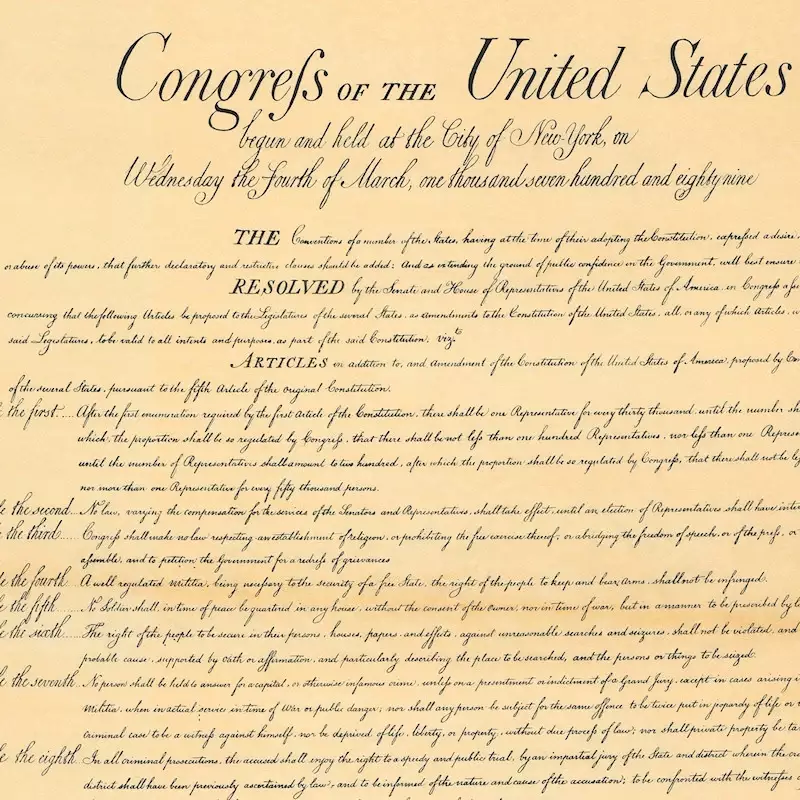 Congreſs OF THE United States
begun and held at the City of New-York, on
Wednesday the Fourth of March, one thousand seven hundred and eighty nine
THE Conventions of a number of the States, having at the time of their adopting the Constitution, expreſsed a desire
or abuse of its powers, that further declaratory and restrictive clauses should be added: And as extending the ground of public confidence in the Government, will best ensure
RESOLVED by the Senate and House of Representatives of the United States of America, in Congreſs
concurring that the following Articles be proposed to the Legislatures of the several States, as amendments to the Constitution of the United States, all, or any of which Articles,
said Legislatures, to be valid to all intents and purposes, as part of the said Constitution, vizt.
ARTICLES in addition to, and Amendment of the Constitution of the United States of America, proposed by
of the several States, pursuant to the fifth Article of the original Constitution.
the first.... After the first enumeration required by the first Article of the Constitution, there shall be one Representative for every thirty thousand, until the number
which, the proportion shall be so regulated by Congreſs, that there shall be not leſs than one hundred Representatives, nor leſs than one
until the number of Representatives shall amount to two hundred, after which the proportion shall be so regulated by Congreſs, that there shall not be
nor more than one Representative for every fifty thousand persons.
the second... No law, varying the compensation for the services of the Senators and Representatives, shall take effect, until an election of Representatives shall have
the third...... Congreſs shall make no law respecting an establishment of religion, or prohibiting the free exercise thereof; or abridging the freedom of speech, or of the preſs, or
aſsemble, and to petition the Government for a redreſs of grievances
the fourth.... A well regulated Militia, being neceſsary to the security of a free State, the right of the people to keep and bear Arms, shall not be infringed.
the fifth...... No Soldier shall, in time of peace be quartered in any house, without the consent of the Owner, nor in time of war, but in a manner to be prescribed by
the sixth..... The right of the people to be secure in their persons, houses, papers, and effects, against unreasonable searches and seizures, shall not be violated, and
probable cause, supported by Oath or affirmation, and particularly describing the place to be searched, and the persons or things to be seized.
the seventh... No person shall be held to answer for a capital, or otherwise infamous crime, unleſs on a presentment or indictment of a Grand Jury, except in cases arising
Militia, when in actual service in time of War or public danger; nor shall any person be subject for the same offence to be twice put in jeopardy of life or
criminal case to be a witneſs against himself, nor be deprived of life, liberty, or property, without due proceſs of law; nor shall private property be
the eighth.. In all criminal prosecutions, the accused shall enjoy the right to a speedy and public trial, by an impartial jury of the State and district wherein the
district shall have been previously ascertained by law, and to be informed of the nature and cause of the accusation; to be confronted with the witneſses